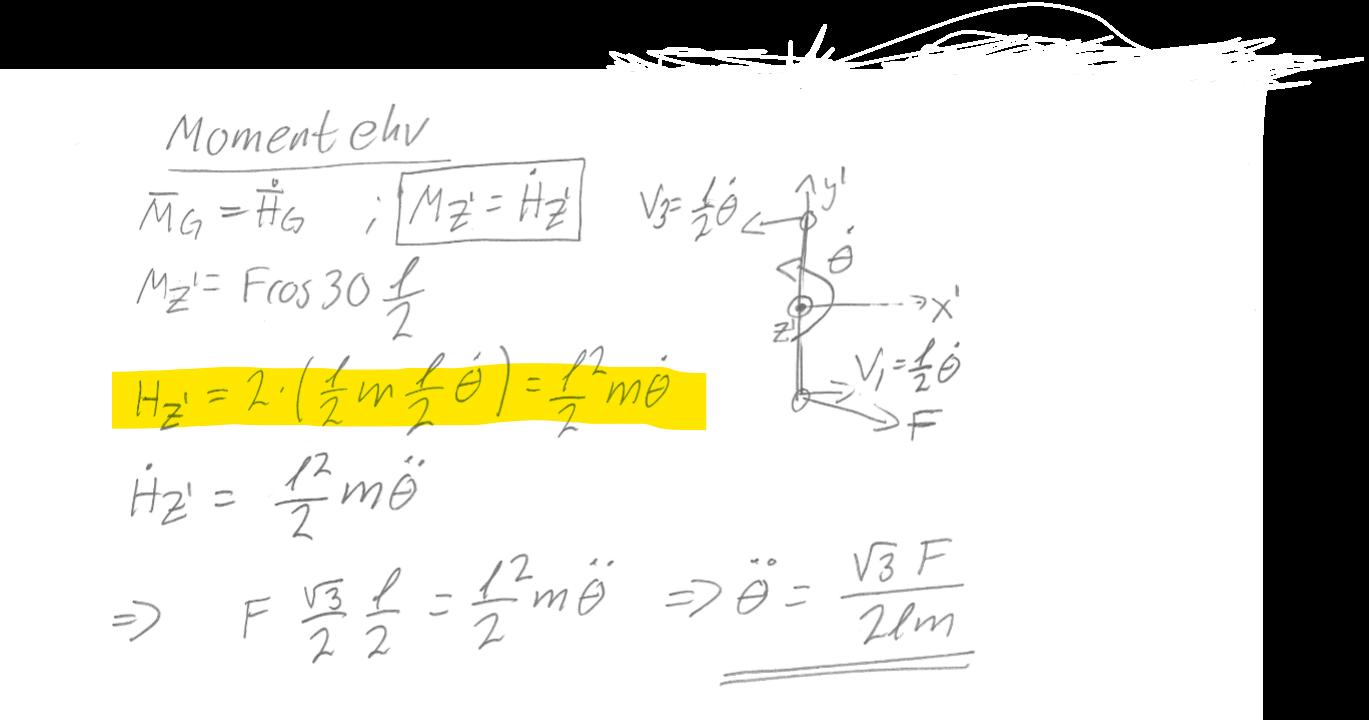 Moment ekv
M̄G = H̄̇G ; Mz' = Ḣz'
Mz' = Fcos30 l/2
Hz' = 2·(l/2 m l/2 θ̇) = l²/2 mθ̇
Ḣz' = l²/2 mθ̈
=> F √3/2 l/2 = l²/2 mθ̈ => θ̈ = √3 F/2lm
V3 = l/2 θ̇
y'
θ̇
x'
z'
V1 = l/2 θ̇
F